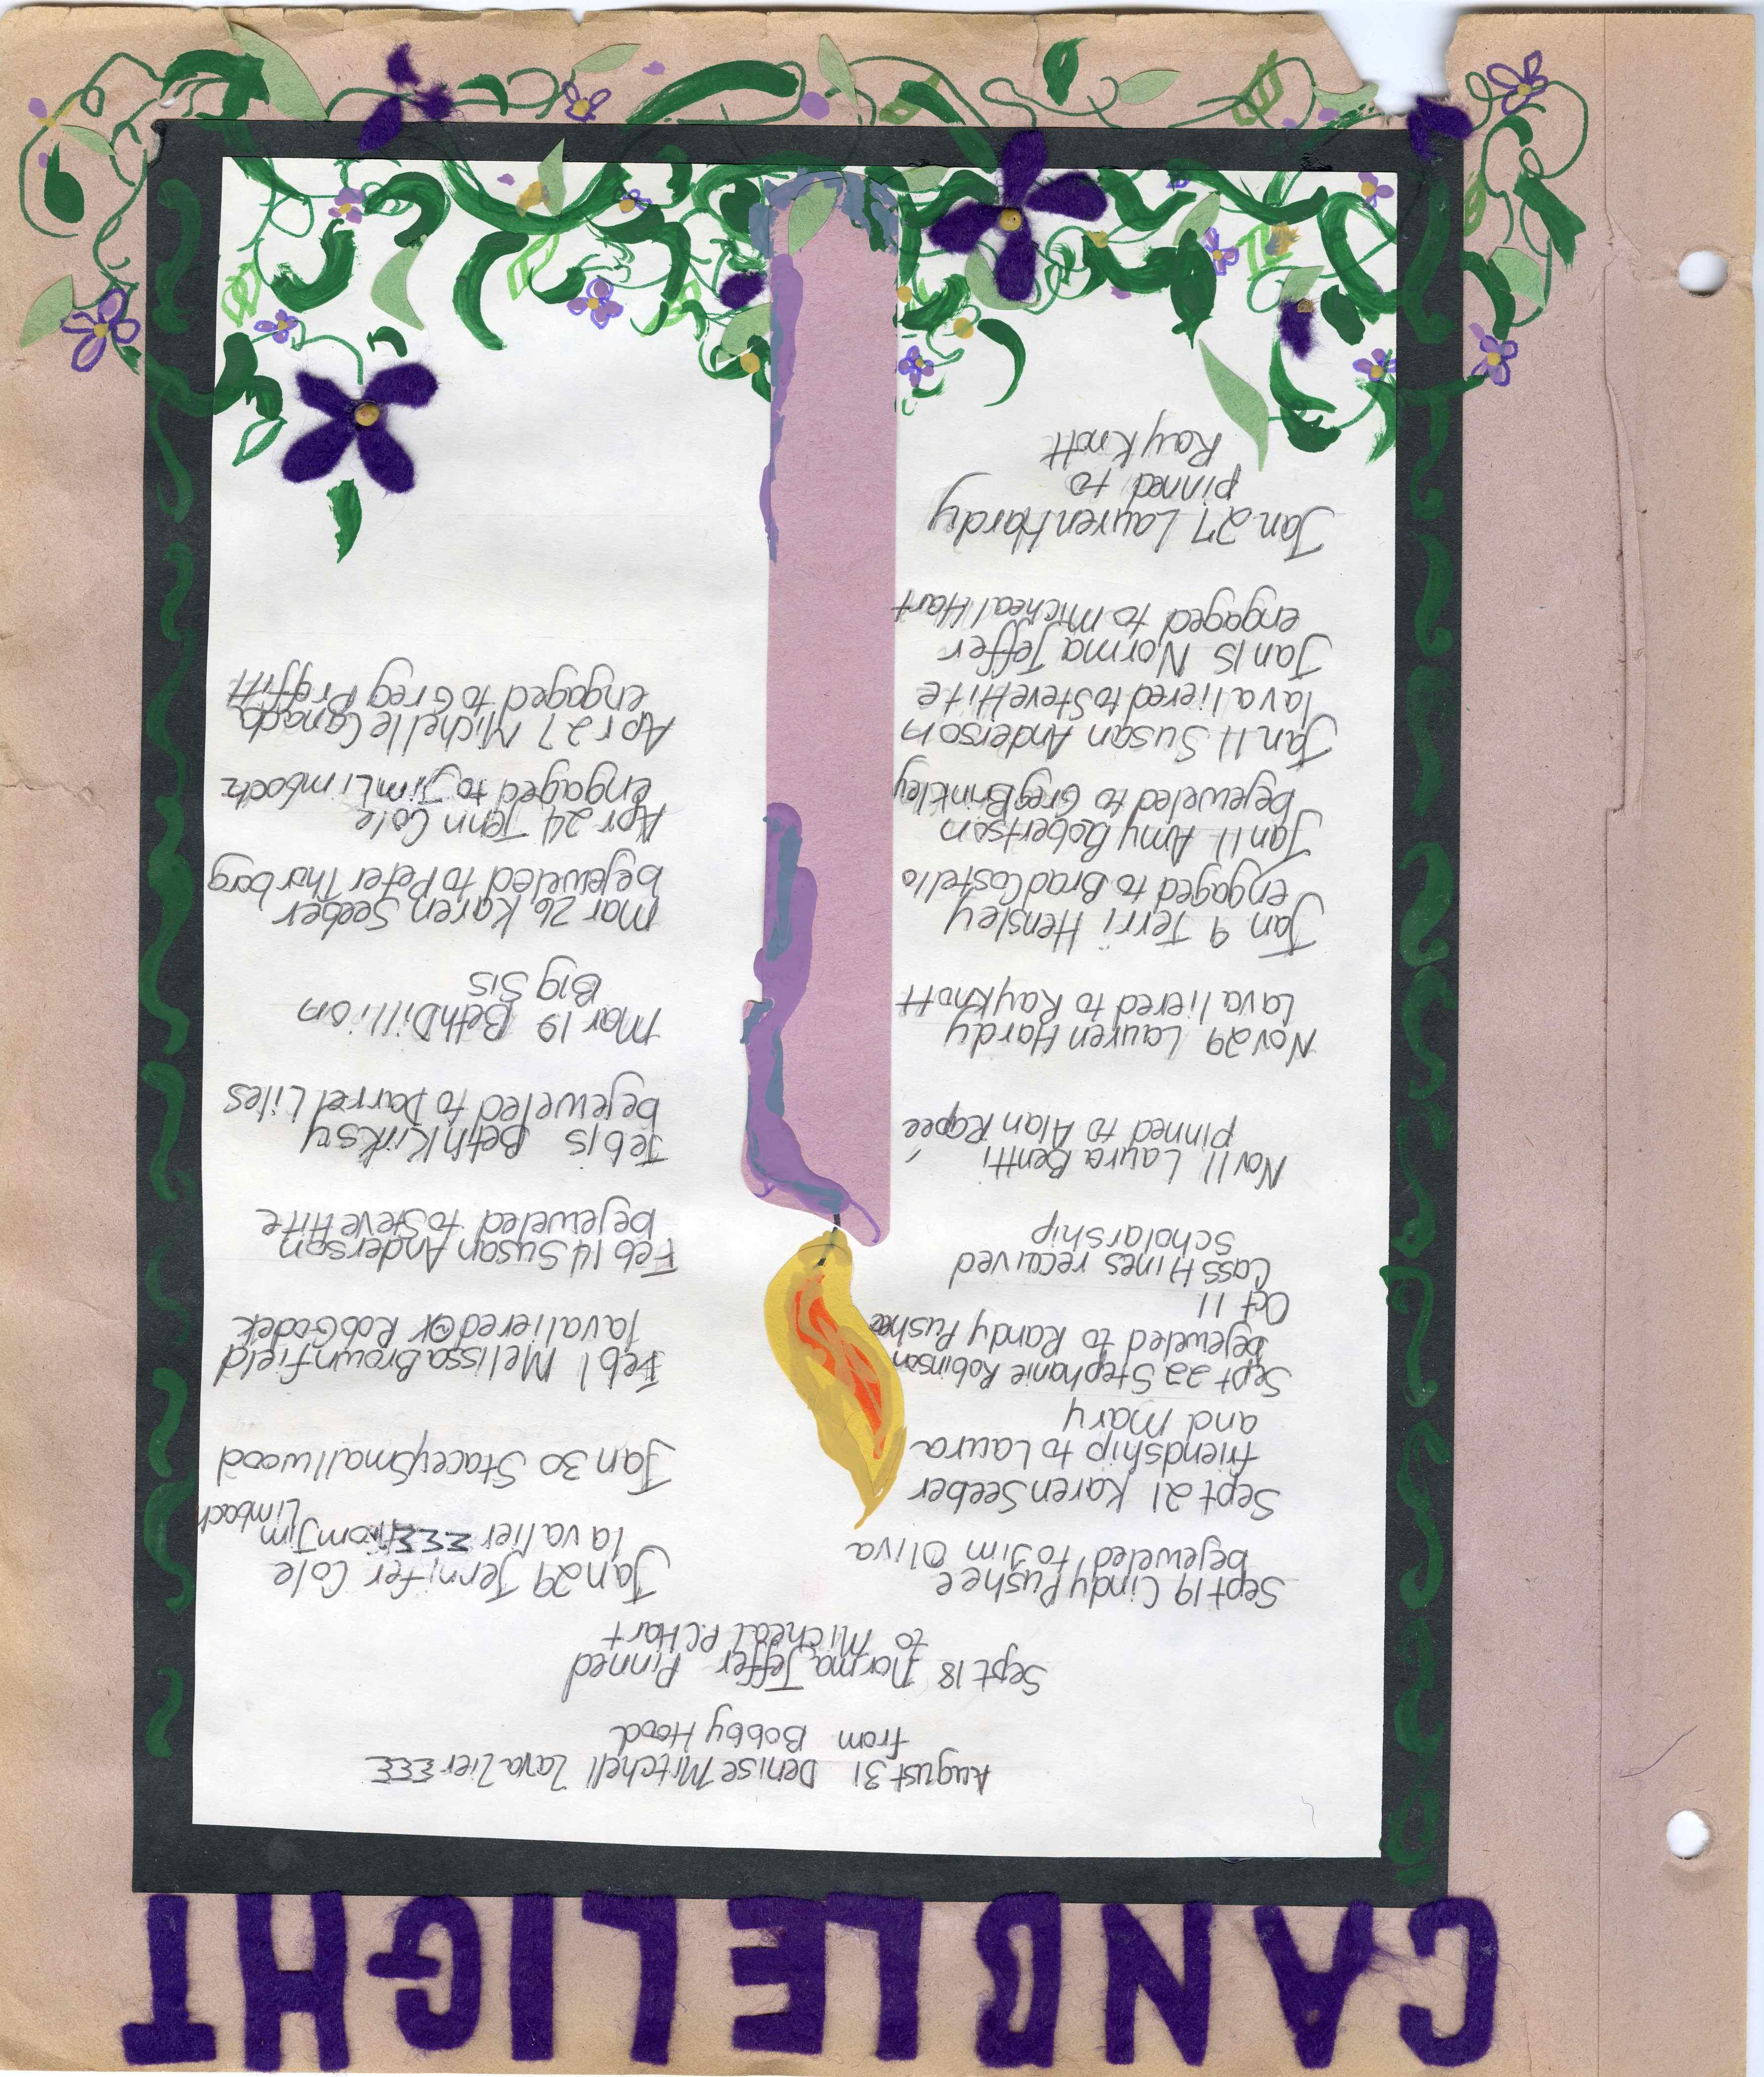 CANDLELIGHT
August 31 Denise Mitchell Lavalier ΣΣΣ
from Bobby Hood
Sept 18 Norma Jeffer Pinned
to Micheal P.C. Hart
Sept 19 Cindy Pushee
bejeweled to Jim Oliva
Sept 21 Karen Seeber
friendship to Laura
and Mary
Sept 22 Stephanie Robinson
bejeweled to Randy Pushee
Oct 11
Cass Hines received
scholarship
Nov 11 Laura Bentti
pinned to Alan Rapee
Nov 29 Lauren Hardy
Lavaliered to Ray Knott
Jan 9 Terri Hensley
engaged to Brad Costello
Jan 11 Amy Robertson
bejeweled to Greg Brinkley
Jan 11 Susan Anderson
lavaliered to Steve Hite
Jan 15 Norma Jeffer
engaged to Micheal Hart
Jan 27 Lauren Hardy
pinned to
Ray Knott
Jan 29 Jennifer Cole
lavalier ΣΣΣ from Jim
Limbach
Jan 30 Stacey Smallwood
Feb 1 Melissa Brownfield
lavaliered ΘX Rob Godek
Feb 14 Susan Anderson
bejeweled to Steve Hite
Feb 15 Beth Kirksy
bejeweled to Darrel Liles
Mar 19 Beth Dillion
Big Sis
Mar 26 Karen Seeber
bejeweled to Peter Thorborg
Apr 24 Jenn Cole
engaged to Jim Limbach
Apr 27 Michelle Canada
engaged to Greg Proffitt